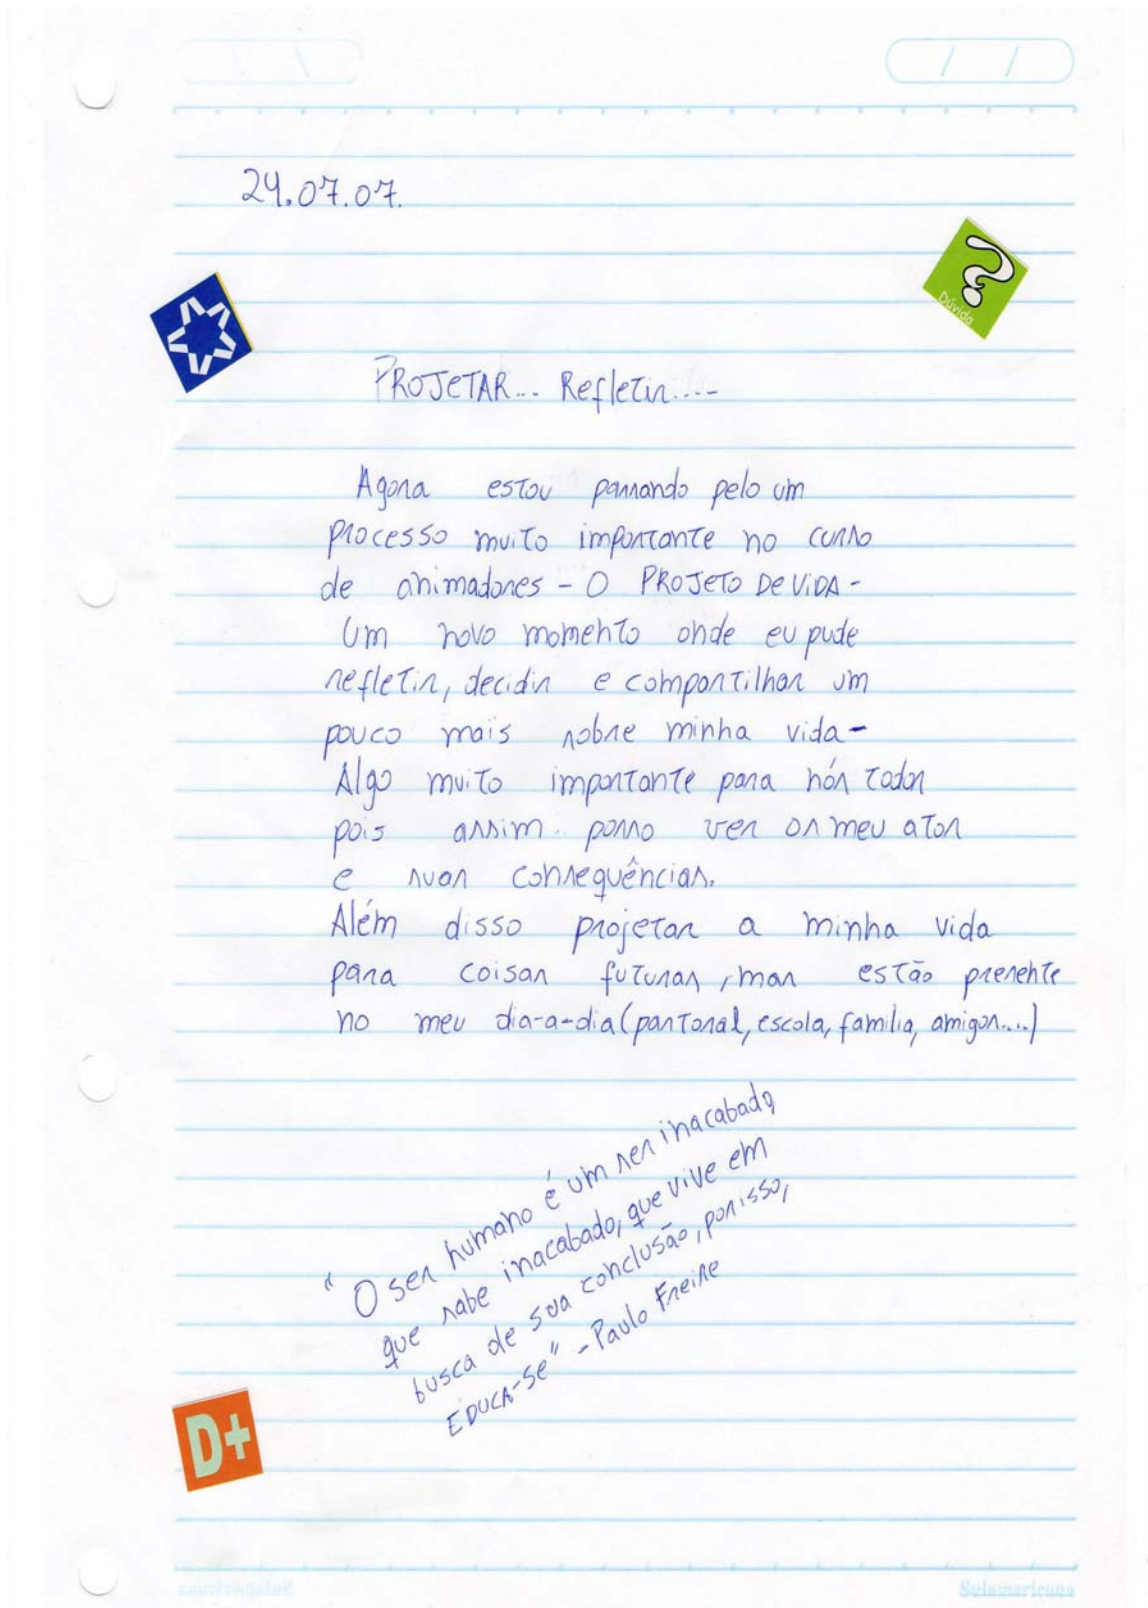 24.07.07.
Dúvida
PROJETAR... Refletir....
Agora estou passando pelo um
processo muito importante no curso
de animadores - O PROJETO DE VIDA -
Um novo momento onde eu pude
refletir, decidir e compartilhar um
pouco mais sobre minha vida-
Algo muito importante para nós todos
pois assim.. posso ver os meu atos
e suas consequências.
Além disso projetar a minha vida
para coisas futuras, mas estão presente
no meu dia-a-dia (pastoral, escola, familia, amigos....)
"O ser humano é um ser inacabado,
que sabe inacabado, que vive em
busca de sua conclusão, por isso,
EDUCA-se" - Paulo Freire
D+
Sulamericana